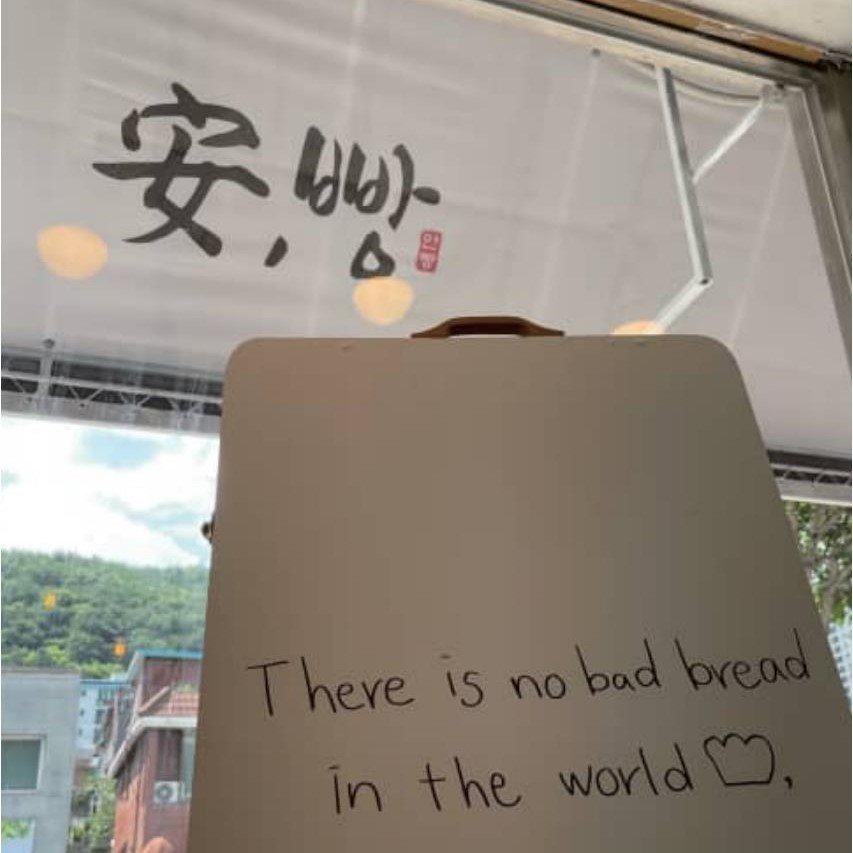 安, 빵
안
빵
There is no bad bread
in the world ,